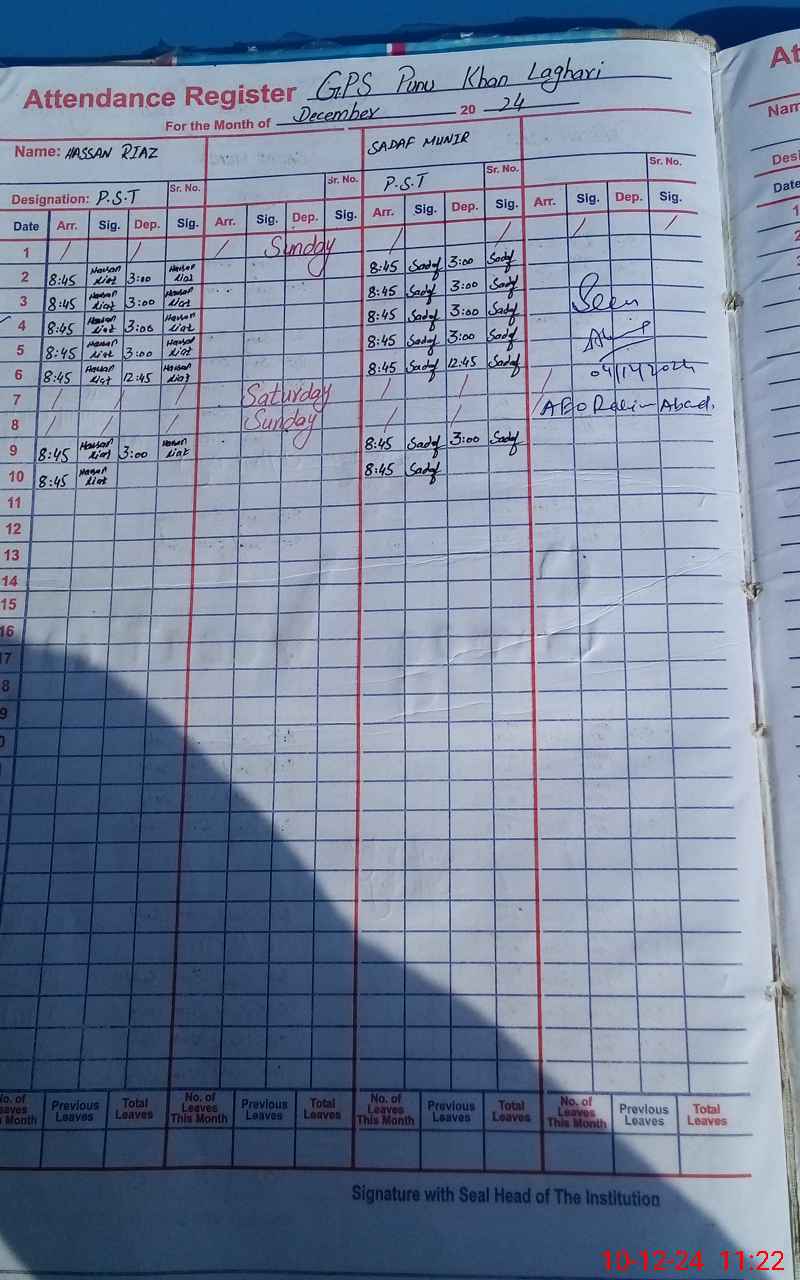 Attendance Register GPS Punu Khan Laghari
For the Month of December 20 24
Name: HASSAN RIAZ SADAF MUNIR
Sr. No. Sr. No. Sr. No. Sr. No.
Designation: P.S.T P.S.T
Date Arr. Sig. Dep. Sig. Arr. Sig. Dep. Sig. Arr. Sig. Dep. Sig. Arr. Sig. Dep. Sig.
1 / / / Sunday / / / /
2 8:45 Hassan Riaz 3:00 Hassan Riaz 8:45 Sadaf 3:00 Sadaf
3 8:45 Hassan Riaz 3:00 Hassan Riaz 8:45 Sadaf 3:00 Sadaf Seen
4 8:45 Hassan Riaz 3:00 Hassan Riaz 8:45 Sadaf 3:00 Sadaf
5 8:45 Hassan Riaz 3:00 Hassan Riaz 8:45 Sadaf 3:00 Sadaf
6 8:45 Hassan Riaz 12:45 Hassan Riaz 8:45 Sadaf 12:45 Sadaf
7 / / / Saturday / / /
8 / / / Sunday / / / AEO Rahim Abad.
9 8:45 Hassan Riaz 3:00 Hassan Riaz 8:45 Sadaf 3:00 Sadaf
10 8:45 Hassan Riaz 8:45 Sadaf
11
12
13
14
15
16
No. of Leaves This Month Previous Leaves Total Leaves No. of Leaves This Month Previous Leaves Total Leaves No. of Leaves This Month Previous Leaves Total Leaves No. of Leaves This Month Previous Leaves Total Leaves
Signature with Seal Head of The Institution
10-12-24 11:22